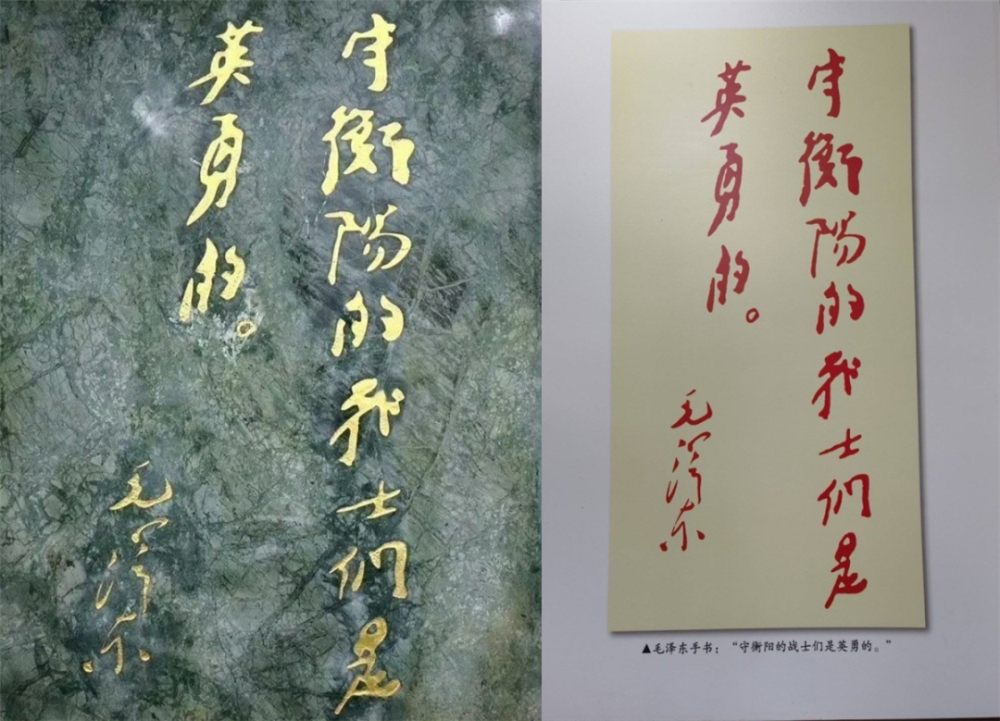 守衡陽的战士们是
英勇的。
毛泽东
守衡陽的战士们是
英勇的。
毛泽东
▲毛泽东手书：“守衡阳的战士们是英勇的。”